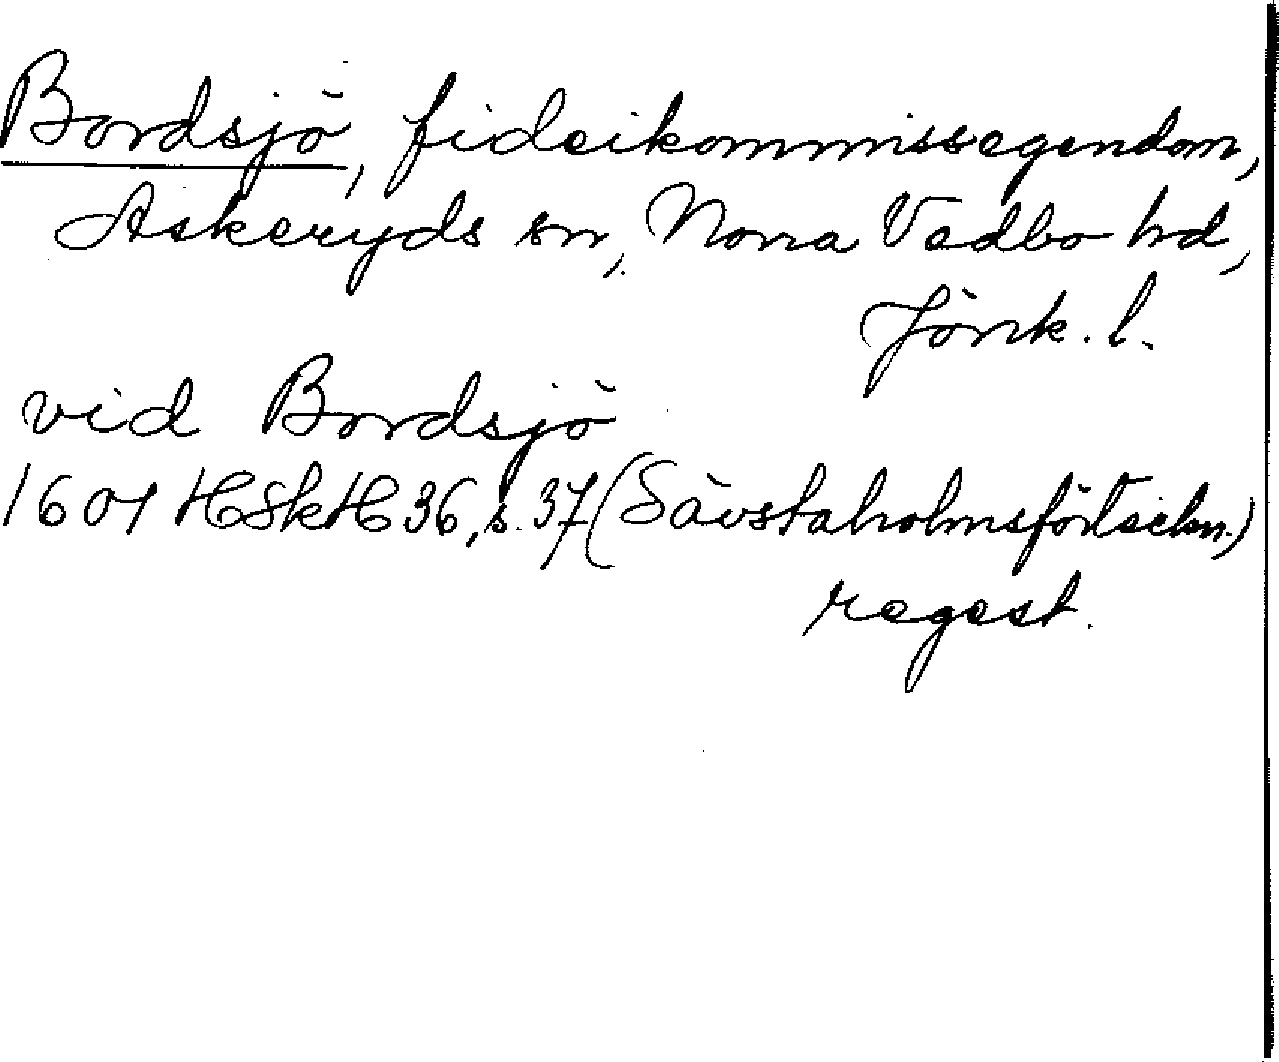 Bordsjö, fideikommissegendom,
Askeryds sn, Norra Vedbo hd,
Jönk. l.
vid Bordsjö
1601 HSkH 36, s. 37 (Sävstaholmsförteckn.)
regest.